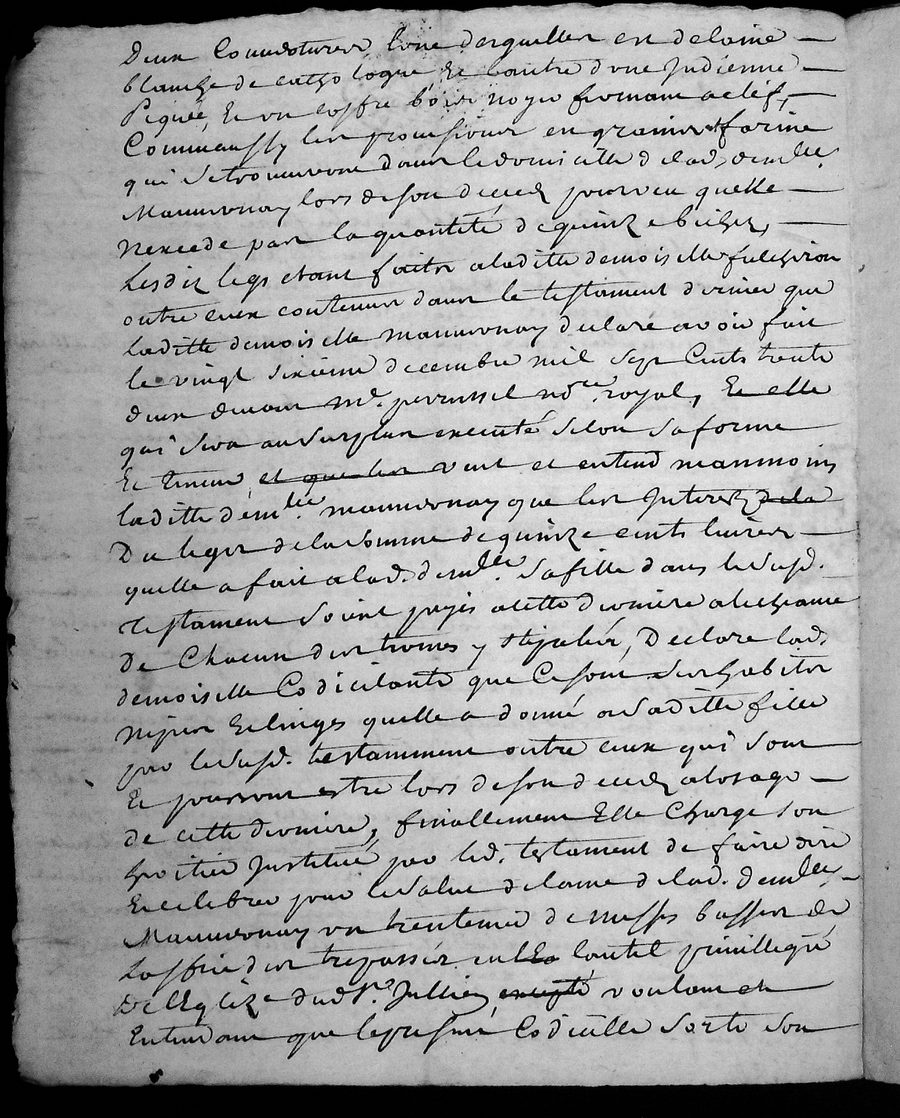 Deux Couvertures, lune desquelles est de laine
blanche de cathalogne Et lautre d'une Indienne
Piquée, Et un coffre bois noyer fermant a clef,
Comme aussy les provisions en grains et farine
qui se trouveront dans le domicille de lad. demlle
Mauvernay lors de son deced pourveu quelle
nexcede pas la quantité de quinze bichets,
Lesdis legs etant faits a laditte demoiselle
outre ceux contenus dans le testament dernier que
laditte demoiselle Mauvernay declare avoir fait
le vingt sixieme decembre mil sept Cents trente
deux devant Me. perrussel nore. royal, Et elle
qui sera au surplus executé selon sa forme
Et teneur et que les veut et entend neanmoins
laditte demlle Mauvernay que les Interets de la
Du legs de la somme de quinze cents livres
quelle a fait a lad. demlle. sa fille dans le susd.
testament soient payés a cette derniere a lecheance
de Chacun des termes y stipulés, Declare lad.
demoiselle Codicilante que Ce sont ses habits
nipes Et linges quelle a donné a saditte fille
par le susd. testamment outre ceux qui sont
Et pourront estre lors de son deced a lusage
de cette derniere, finallement Elle Charge son
heritier Institué par led. testament de faire dire
Et celebrer pour le salut de lame de lad. demlle
Mauvernay un trentenier de messes basses de
Loffice des trepassés en la lautel privillegié
de leglize dud. St. Jullien excepté voulant et
Entendant que le presént Codicille sorte son